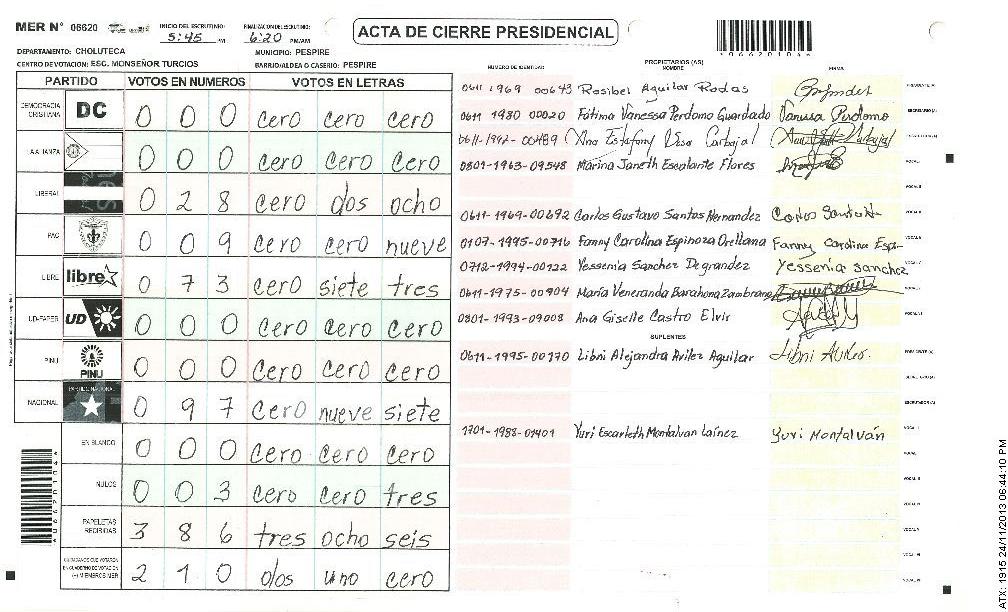 MER N° 06620
INICIO DEL ESCRUTINIO: 5:45 PM
FINALIZACION DEL ESCRUTINIO: 6:20 PM/AM
ACTA DE CIERRE PRESIDENCIAL
DEPARTAMENTO: CHOLUTECA
MUNICIPIO: PESPIRE
CENTRO DE VOTACION: ESC. MONSEÑOR TURCIOS
BARRIO/ALDEA O CASERIO: PESPIRE
PARTIDO VOTOS EN NUMEROS VOTOS EN LETRAS
DEMOCRACIA CRISTIANA DC 0 0 0 cero cero cero
LA ALIANZA 0 0 0 cero cero cero
LIBERAL 0 2 8 cero dos ocho
PAC 0 0 9 cero cero nueve
LIBRE libre 0 7 3 cero siete tres
UD-FAPER UD 0 0 0 cero cero cero
PINU PINU 0 0 0 cero cero cero
NACIONAL PARTIDO NACIONAL 0 9 7 cero nueve siete
EN BLANCO 0 0 0 cero cero cero
NULOS 0 0 3 cero cero tres
PAPELETAS RECIBIDAS 3 8 6 tres ocho seis
CIUDADANOS QUE VOTARON EN CUADERNO DE VOTACION (+) MIEMBROS MER 2 1 0 dos uno cero
NUMERO DE IDENTIDAD PROPIETARIOS (AS) NOMBRE FIRMA
0611 1969 00643 Rosibel Aguilar Rodas PRESIDENTE (A)
0611 1980 00020 Fátima Vanessa Perdomo Guardado Vanessa Perdomo SECRETARIO (A)
0611-1962-00489 Ana Estafany Carbajal
0801-1963-09548 Marina Janeth Escalante Flores VOCAL I
VOCAL II
0611-1969-00692 Carlos Gustavo Santos Hernandez Carlos
0107-1995-00716 Fanny Carolina Espinoza Orellana Fanny Carolina Esp-
0712-1994-00122 Yessenia Sanchez Degrandez Yessenia Sanchez
0611-1975-00904 María Veneranda Barahona Zambrano
0801-1993-09008 Ana Giselle Castro Elvir
SUPLENTES
0611-1995-00170 Libni Alejandra Avilez Aguilar Libni Avilez. PRESIDENTE (A)
SECRETARIO (A)
ESCRUTADOR (A)
1701-1988-01401 Yuri Escarleth Montalvan Laínez Yuri Montalván VOCAL I
*066201046*
ATX: 1915 24/11/2013 06:44:10 PM